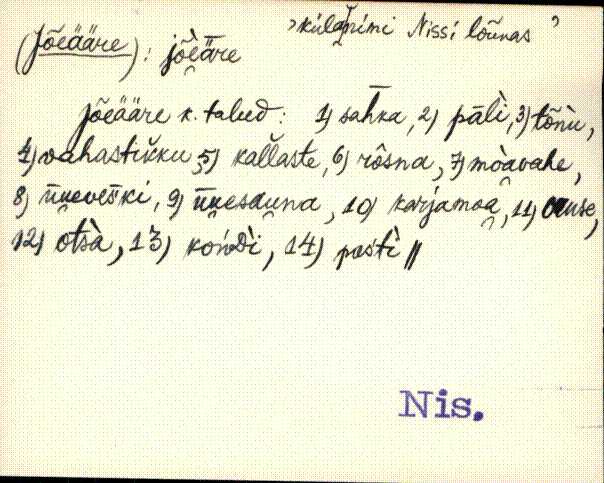 (Jõeääre): jõèǟre ›külanimi Nissi lõunas ’
Jõeääre k. talud: 1) sāhka, 2) pāl̀ì, 3) tõnù,
4) vahastikku, 5) kal̆laste, 6) rôsna, 7) mòavahe,
8) ǖeveski, 9) ǖesauna, 10) karjamoa, 11) uuse,
12) otsà, 13) końdì, 14) posti ‖
Nis.